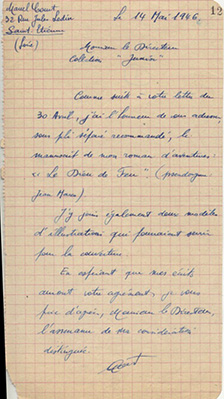 12
Marcel
32 Rue Jules Ledin
Saint-Etienne
(Loire)
Le 14 Mai 1946.
Monsieur le Directeur
Collection "Junior"
Comme suite à votre lettre du
30 Avril, j'ai l'honneur de vous adresser,
sous pli séparé recommandé, le
manuscrit de mon roman d'aventures
"Le Dieu de Feu". (pseudonyme
Jean
J'y joins également deux modèles
d'illustrations qui pourraient servir
pour la couverture.
En espérant que mes écrits
auront votre agrément, je vous
prie d'agréer, Monsieur le Directeur,
l'assurance de ma considération
distinguée.